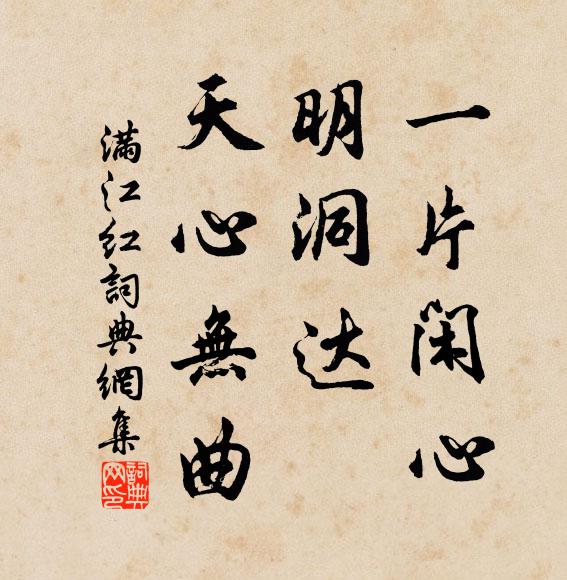 一片闲心
明洞达
天心無曲
满江红詞典網集
詞典网印